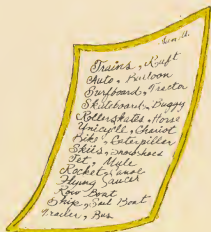 Trains, Raft
Auto, Balloon
Surfboard, Tractor
Skateboard, Buggy
Rollerskates, Horse
Unicycle, Chariot
Bike, Caterpillar
Skiis, Snowshoes
Jet, Mule
Rocket, Canoe
Flying Saucer
Row Boat
Ship, Sail Boat
Trailer, Bus